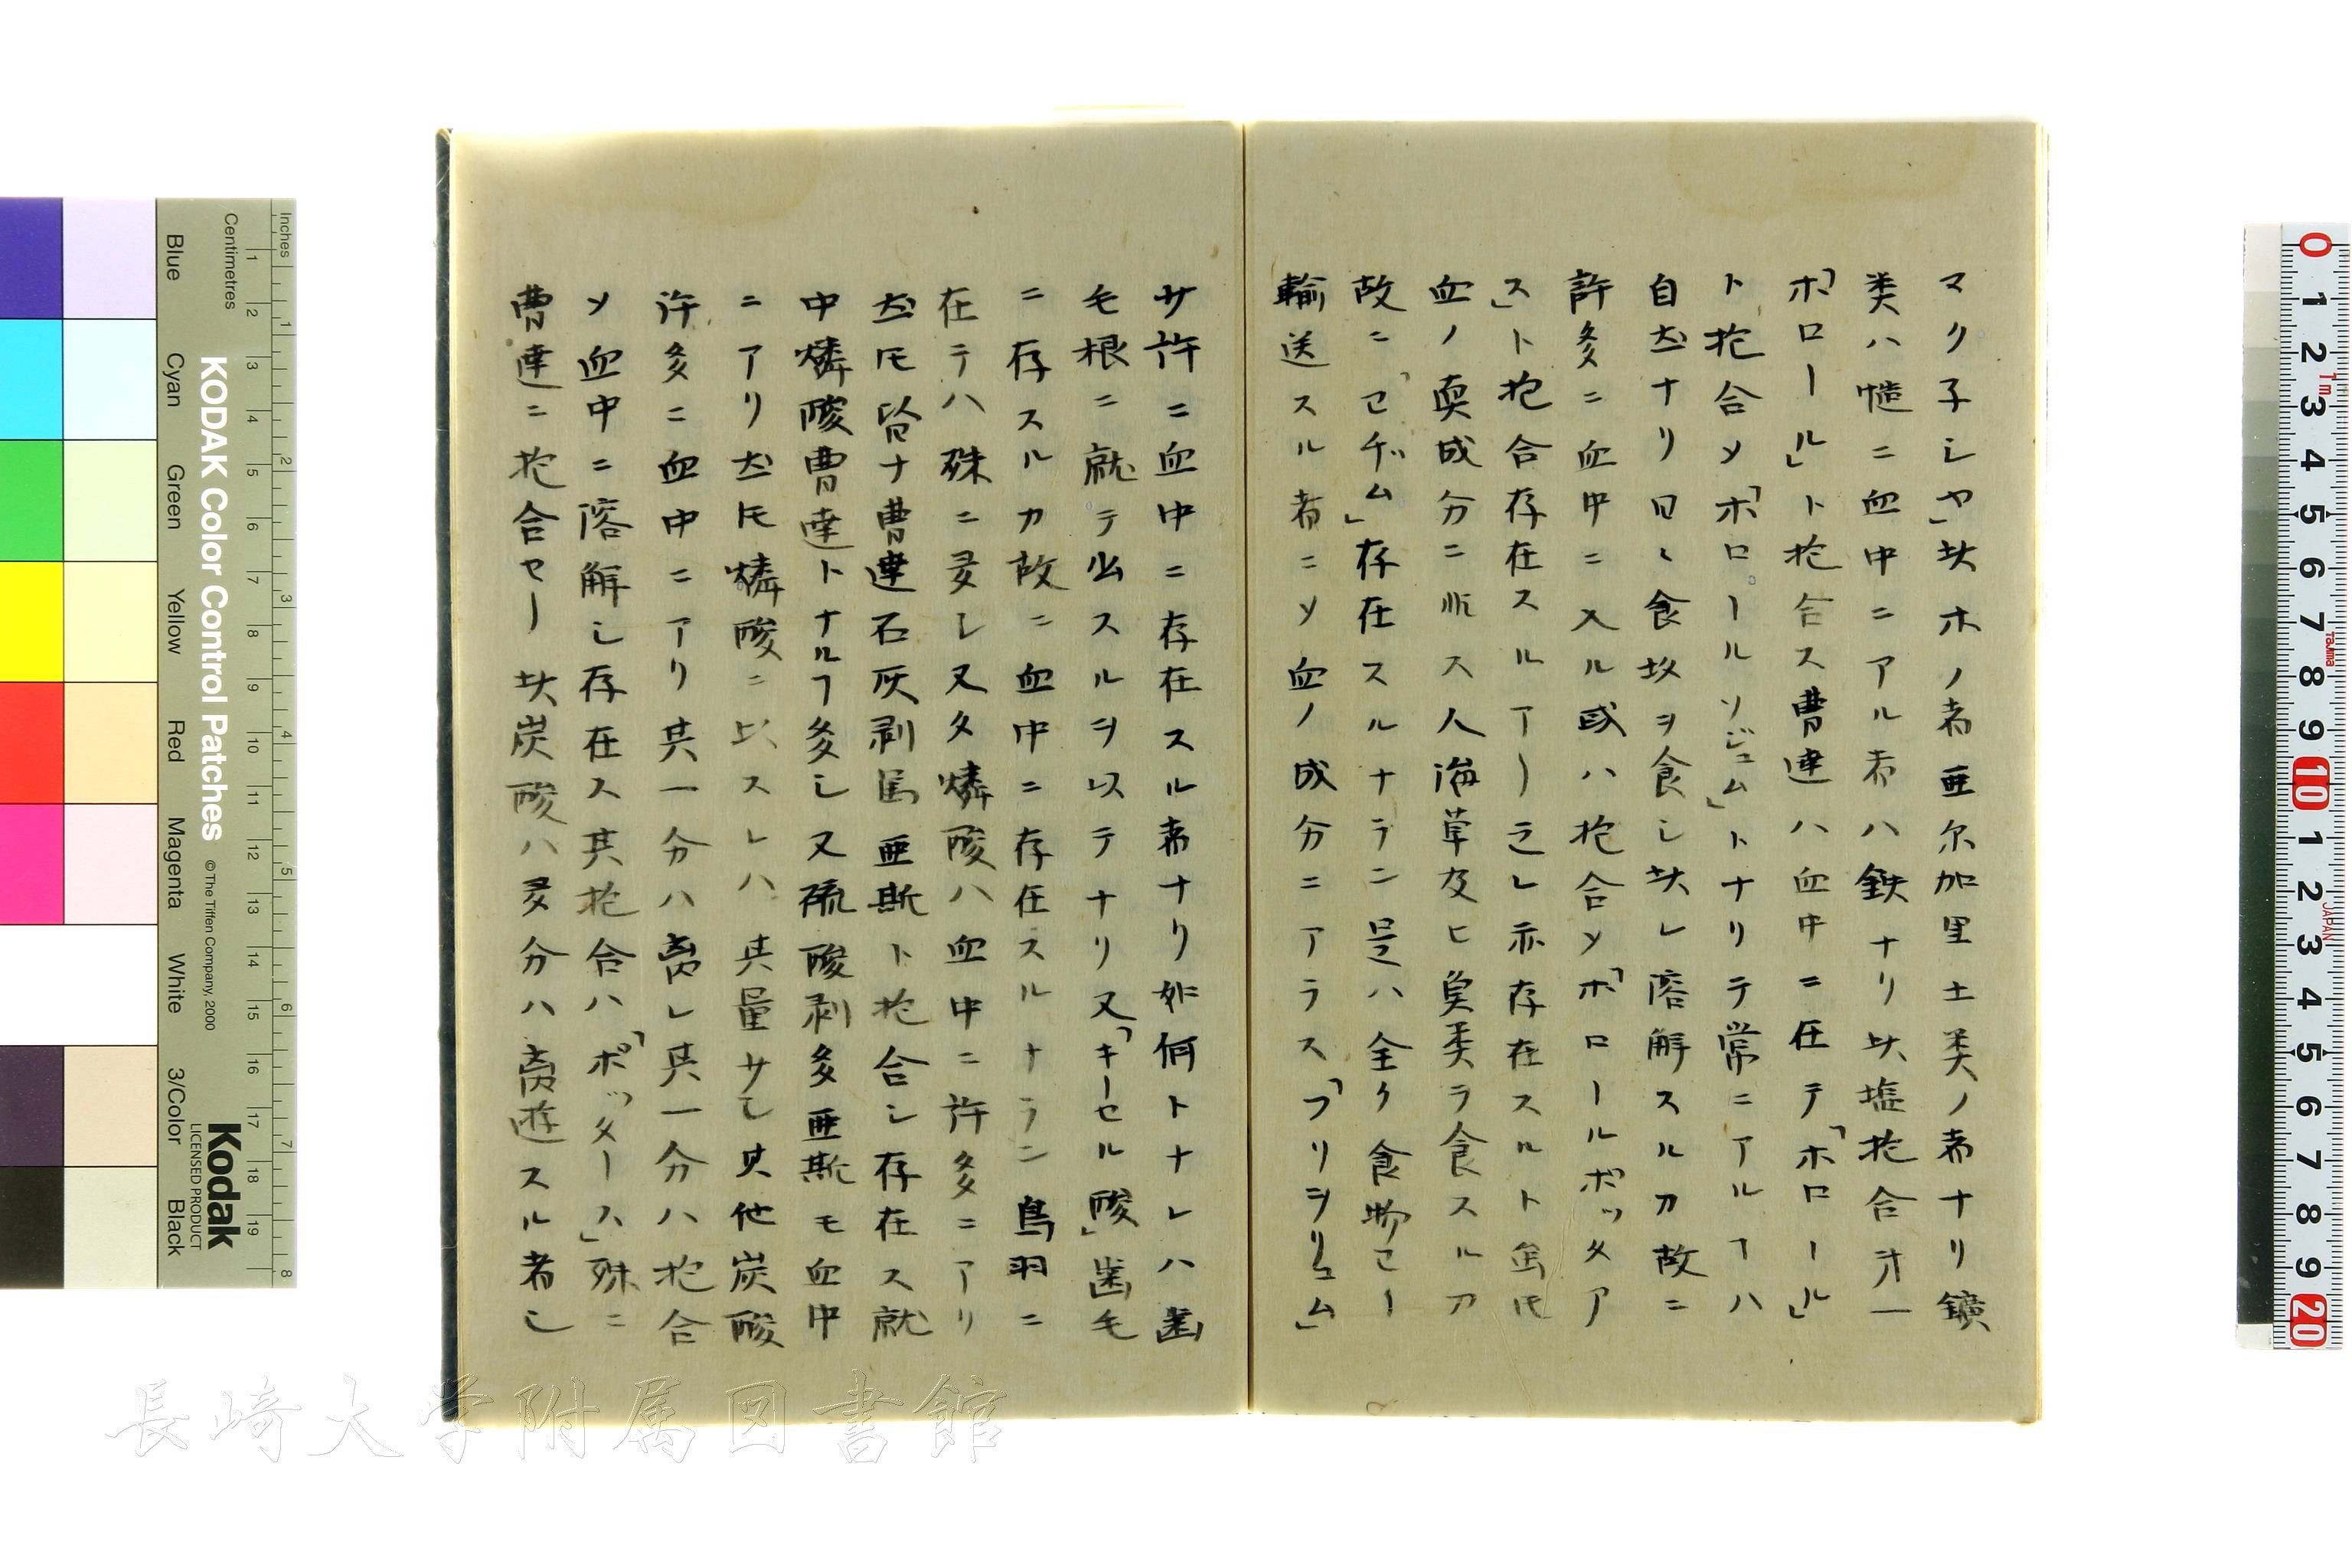 マク子シヤ」此ホノ者亜尓加里土类ノ者ナリ鑛
类ハ慥ニ血中ニアル者ハ鉄ナリ此塩抱合才一
「ホロール」ト抱合ス曹達ハ血中ニ在テ「ホロール」
ト抱合メ「ホロールソジュム」トナリテ常ニアルヿハ
自然ナリ日々食塩ヲ食シ此レ溶解スルカ故ニ
許多ニ血中ニ入ル或ハ抱合メ「ホロールポッタア
ス」ト抱合存在スルアー之レ亦存在スルト雖圧
血ノ真成分ニ非ス人海草及ヒ魚类ヲ食スルカ
故ニ「セヂム」存在スルナラン是ハ全ク食物セー
輸送スル者ニメ血ノ成分ニアラス「フリヲリュム」
サ許ニ血中ニ存在スル者ナリ如何トナレハ歯
毛根ニ就テ出スルヲ以テナリ又「キーセル酸」歯毛
ニ存スルカ故ニ血中ニ存在スルナラン鳥羽ニ
在テハ殊ニ多レ又タ燐酸ハ血中ニ許多ニアリ
然圧皆ナ曹達石灰剥篤亜斯ト抱合シ存在ス就
中燐酸曹達トナルヿ多シ又硫酸剥多亜斯モ血中
ニアリ然圧燐酸ニ比スレハ其量サシ其他炭酸
許多ニ血中ニアリ其一分ハ離レ其一分ハ抱合
メ血中ニ溶解シ存在ス其抱合ハ「ポッタース」殊ニ
曹達ニ抱合セー此炭酸ハ多分ハ離遊スル者シ
Inches
Centimetres
KODAK Color Control Patches
©The Tiffen Company, 2000
Kodak
LICENSED PRODUCT
Blue
Cyan
Green
Yellow
Red
Magenta
White
3/Color
Black
長崎大学附属図書館